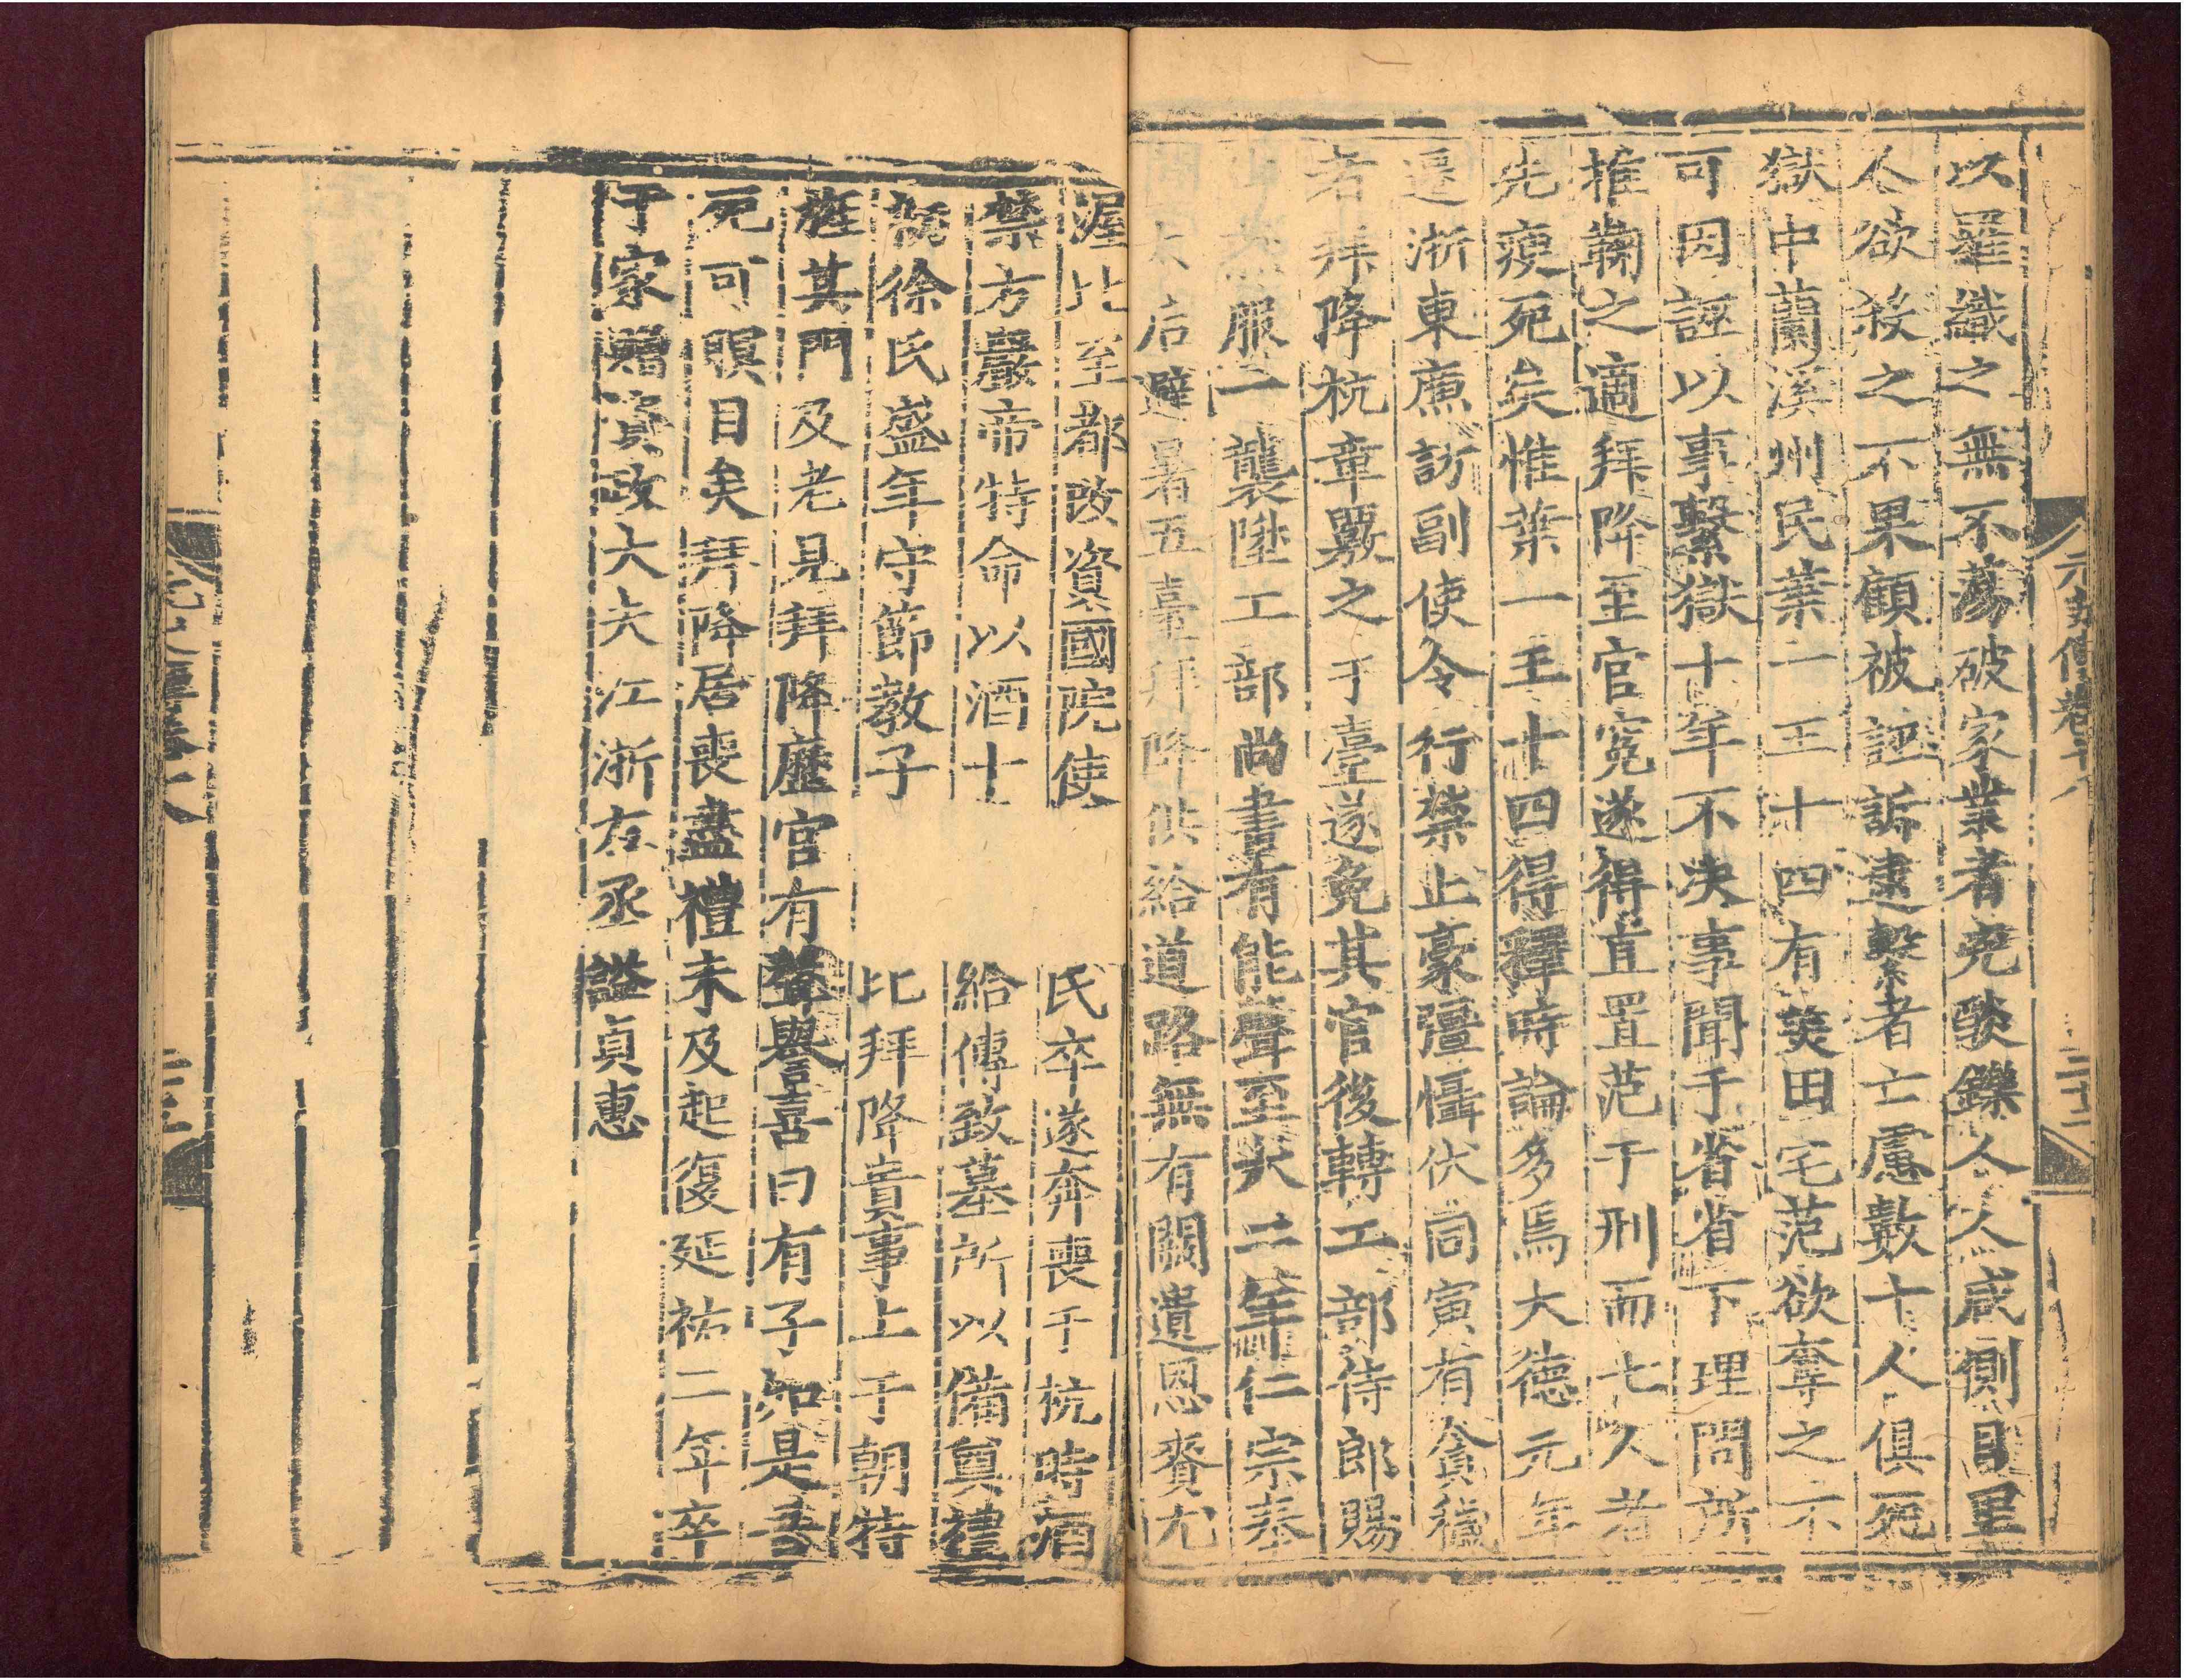 以羅織之無不蕩破家業者兗燄鑠人人咸側目里
人欲殺之不果顧被誣訴逮繫者亡慮數十人俱死
獄中蘭溪州民葉一王十四有羙田宅范欲奪之不
可因誣以事繫獄十年不决事聞于省省下理問所
推鞫之適拜降至官寃遂得直置范于刑而七人者
先瘐死矣惟葉一王十四得釋時論多焉大德元年
遷浙東廉訪副使令行禁止豪彊懾伏同寅有貪穢
者拜降抗章覈之于臺遂免其官後轉工部侍郎賜
服一襲陞工部尚書有能聲至大二年仁宗奉
太后避暑五臺拜降供給道路無有闕遺恩賚尤
渥比至都改資國院使
氏卒遂奔喪于杭時酒
禁方嚴帝特命以酒十
給傳致墓所以備奠禮
徐氏盛年守節教子
比拜降貴事上于朝特
旌其門及老見拜降歷官有聲譽喜曰有子如是吾
死可瞑目矣拜降居喪盡禮未及起復延祐二年卒
于家贈資政大夫江浙左丞謚貞惠
元史傳卷十八
二十二